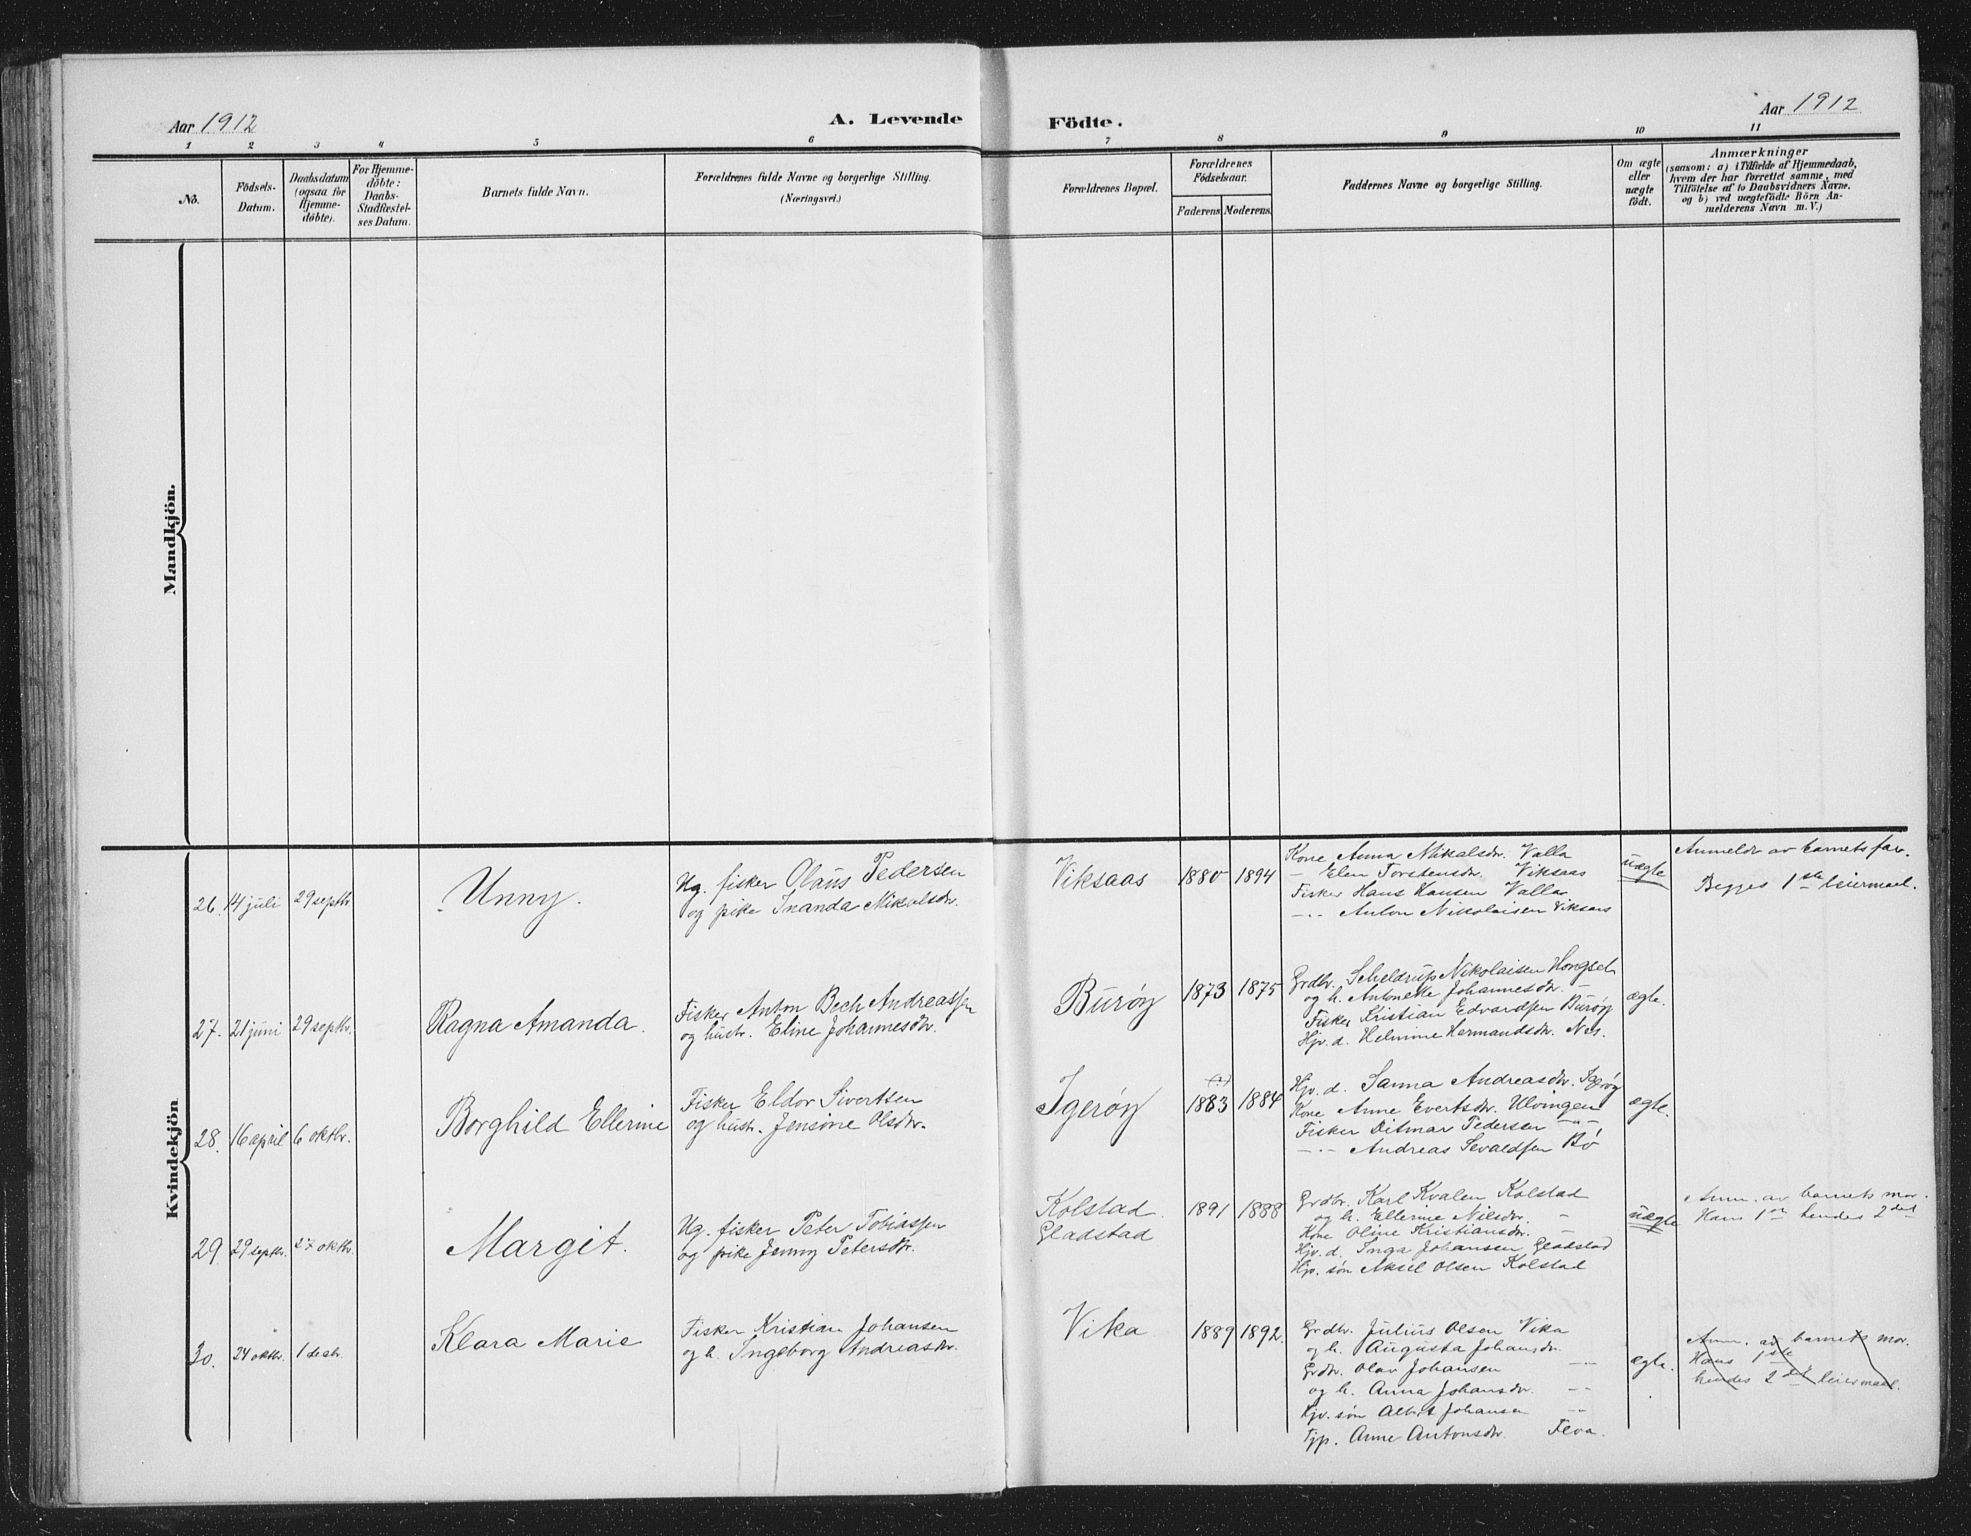 Aar 1912
A. Levende Födte.
Aar 1912
1 2 3 4 5 6 7 8 9 10 11
No.
Födsels-
Datum.
Daabsdatum
(ogsaa for
Hjemme-
döbte).
For Hjemme-
döbte:
Daabs-
Stadfæstel-
ses Datum.
Barnets fulde Navn.
Forældrenes fulde Navne og borgerlige Stilling.
(Næringsvei.)
Forældrenes Bopæl.
Forældrenes
Födselsaar.
Faderens. Moderens.
Faddernes Navne og borgerlige Stilling.
Om ægte
eller
uægte
födt.
Anmærkninger
(saasom: a) i Tilfælde af Hjemmedaab,
hvem der har forrettet samme, med
Tilföielse af to Daabsvidners Navne.
og b) ved uægtefödte Börn An-
melderens Navn m. V.)
Mandkjön.
Kvindekjön
26. 14 juli 29 septbr
Unny.
Ug. fisker Olaus Pedersen
og pike Inanda Mikalsdr.
Viksaas
1880 1894
Kone Anna Mikalsdr. Valla
— Elen Torstensdr. Viksaas
Fisker Hans Hansen Valla
—"— Anton Nikolaisen Viksaas
uægte
Anmeldt av barnets far.
Begges 1ste leiermaal.
27. 21 juni 29 septbr.
Ragna Amanda.
Fisker Anton Bech Andreassen
og hustr. Eline Johannesdr.
Burøy
1873 1875
Grdbr. Scheldrup Nikolaisen Hongset
og h. Antonette Johannesdr. —
Fisker Kristian Edvardsen Burøy
Hjv. d. Helmine Hermandsdr. Nes.
ægte.
28. 16 april 6 oktbr.
Borghild Ellerine
Fisker Eldor Sivertsen
og hustr. Jensine Olsdr.
Igerøy
(!)
1883 1884
Hjv. d. Sanna Andreasdr. Igerøy
Kone Anne Evertsdr. Ulvingen
Fisker Ditmar Pedersen —"—
—"— Andreas Sevaldsen Bø
ægte.
29 29 septbr. 27 oktbr.
Margit.
Ug. fisker Peter Tobiassen
og pike Jenny Petersdr.
Kolstad.
Gladstad
1891 1888
Grdbr. Karl Kvalen Kolstad
og h. Ellerine Nilsdr. —
Kone Oline Kristiansdr. —
Hjv. d. Inga Johansen Gladstad
Hjv. søn Aksel Olsen Kolstad
uægte
Anm. av barnets mor.
Hans 1ste hendes 2det
30. 24 oktbr. 1 decbr.
Klara Marie
Fisker Kristian Johansen
og h. Ingeborg Andreasdr.
Vika
1889 1892.
Grdbr. Julius Olsen Vika
og h. Augusta Johansdr.
Grdbr. Olav Johansen —"—
og h. Anna Johansdr. —"—
Hjv. søn Albert Johansen —"—
Tjp. Anne Antonsdr. Floa.
ægte.
Anm. av barnets mor.
Hans 1ste
hendes 2det leiermaal.